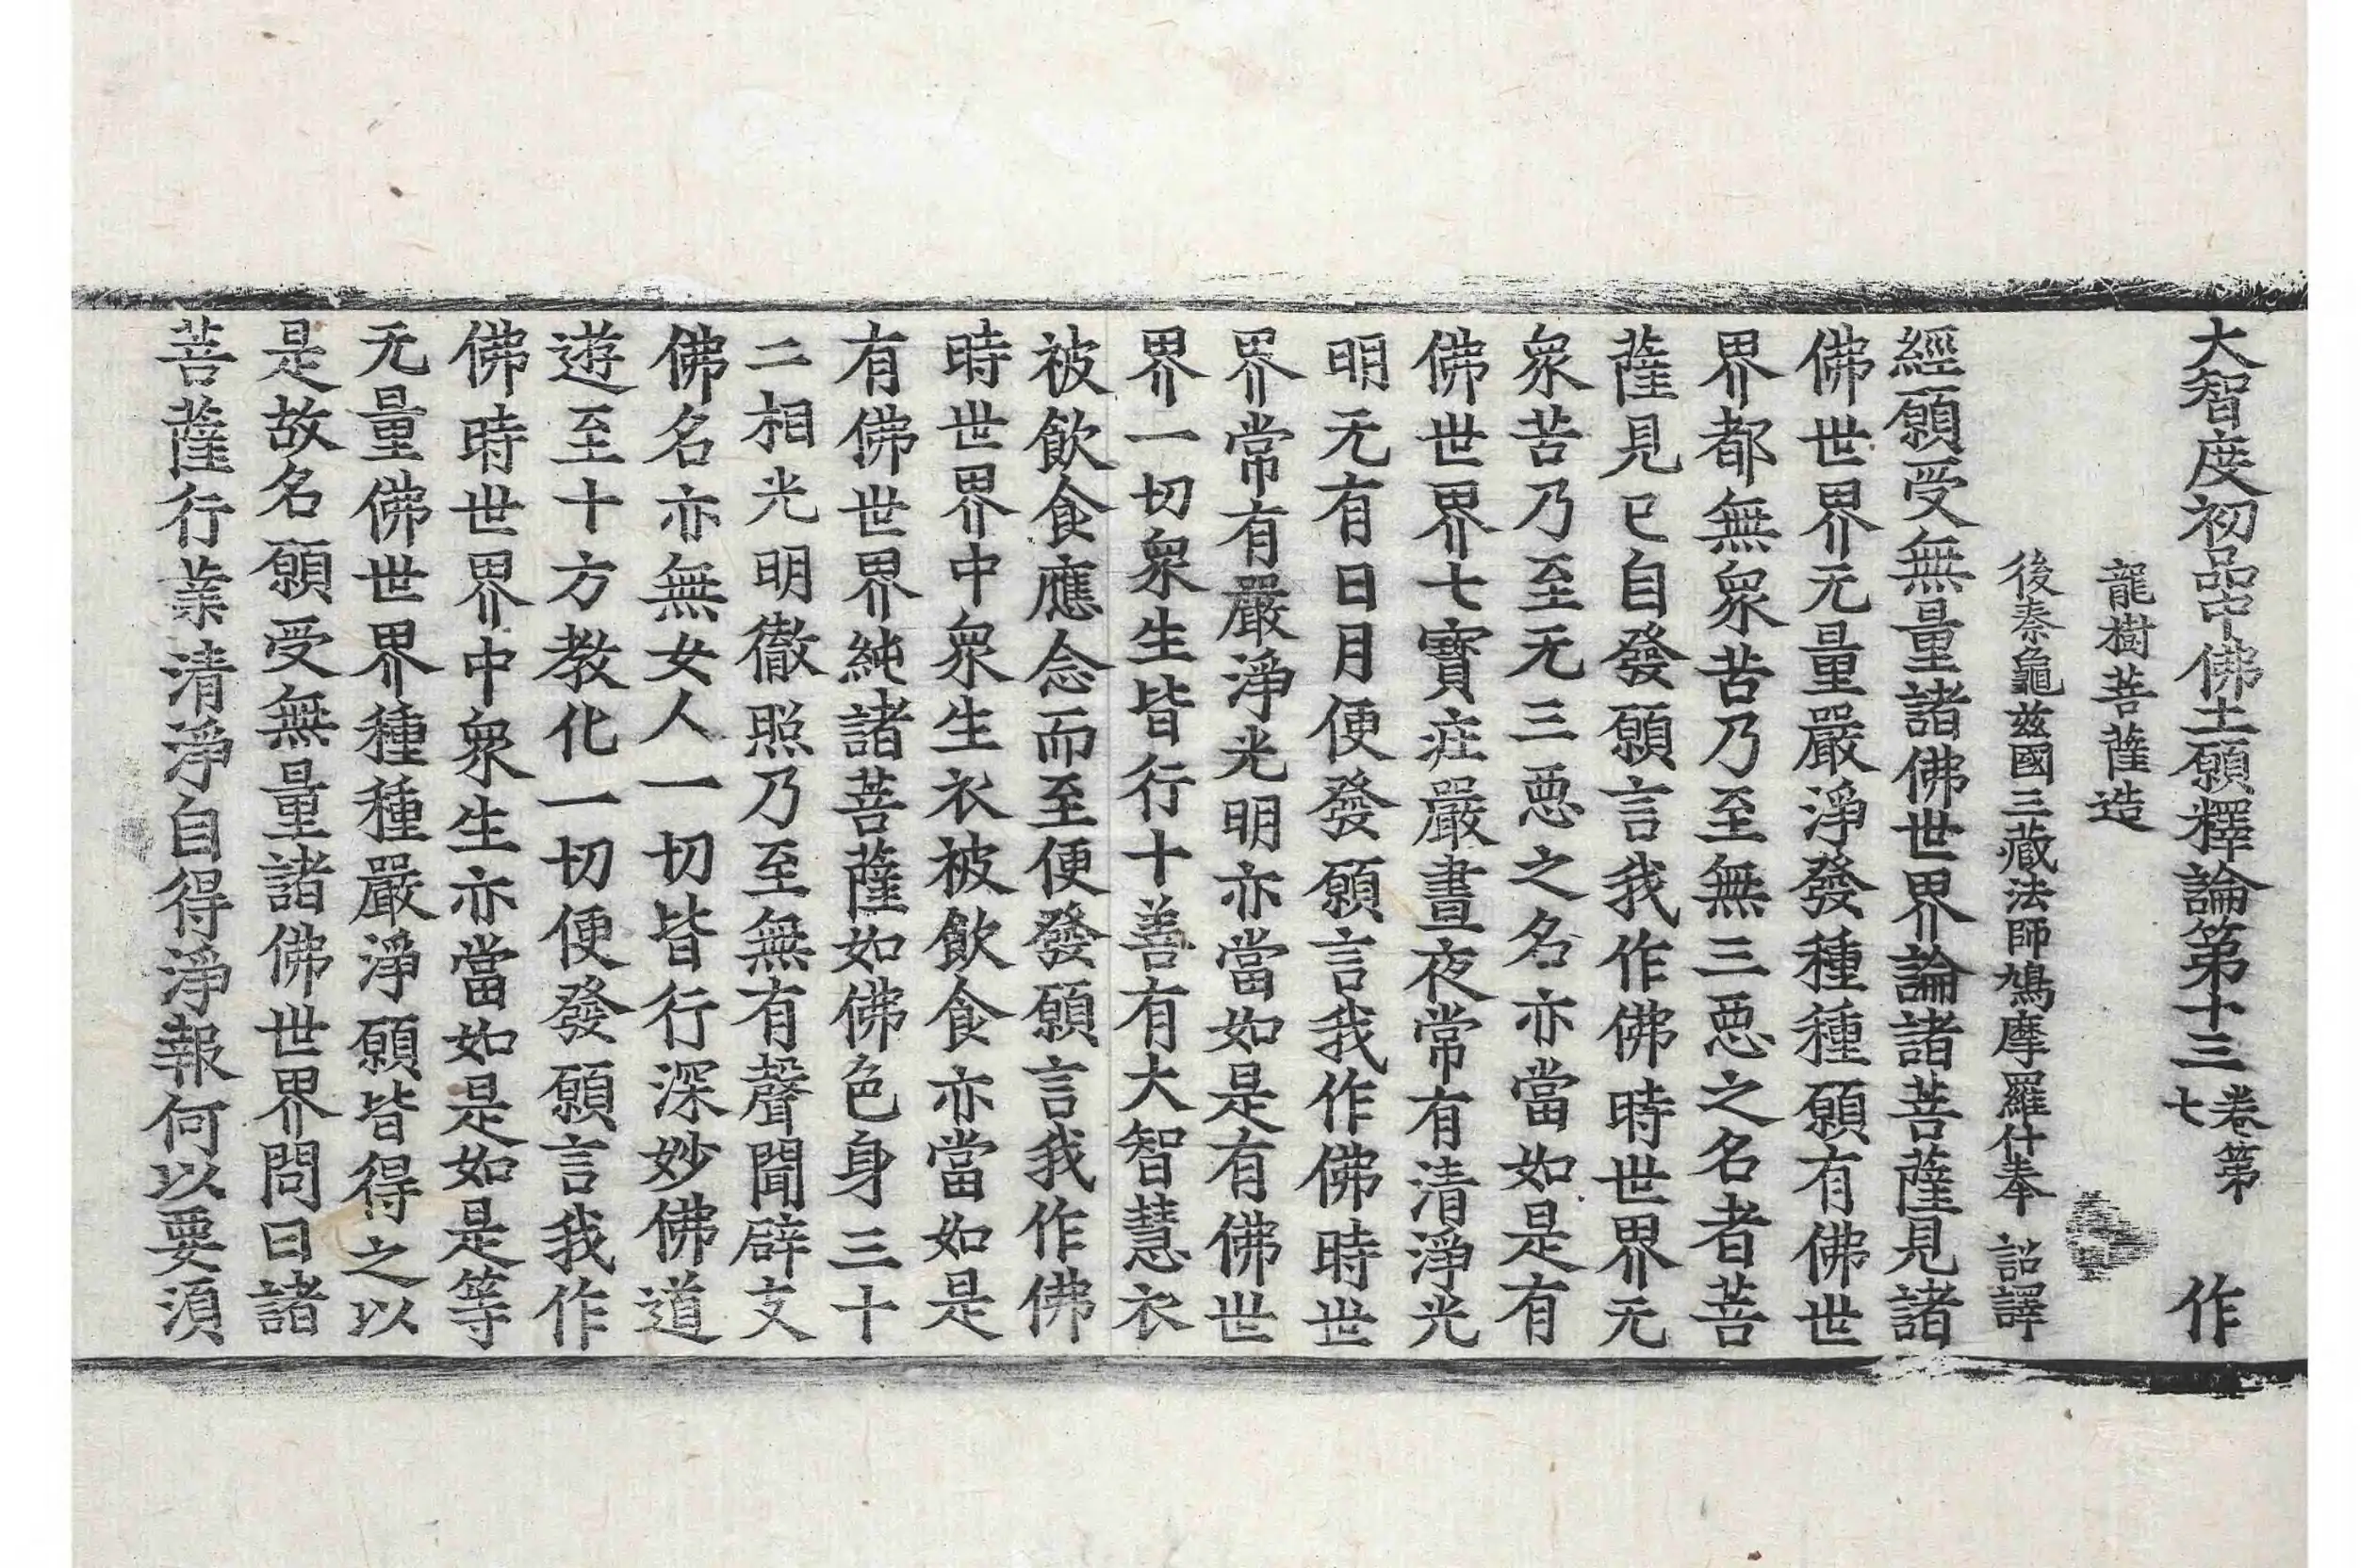 大智度初品中佛土願釋論第十三 卷第七 作
龍樹菩薩造
後秦龜兹國三藏法師鳩摩羅什奉 詔譯
經願受無量諸佛世界論諸菩薩見諸
佛世界无量嚴淨發種種願有佛世
界都無衆苦乃至無三惡之名者菩
薩見已自發願言我作佛時世界无
衆苦乃至无三惡之名亦當如是有
佛世界七寶莊嚴晝夜常有清淨光
明无有日月便發願言我作佛時世
界常有嚴淨光明亦當如是有佛世
界一切衆生皆行十善有大智慧衣
被飲食應念而至便發願言我作佛
時世界中衆生衣被飲食亦當如是
有佛世界純諸菩薩如佛色身三十
二相光明徹照乃至無有聲聞辟支
佛名亦無女人一切皆行深妙佛道
遊至十方教化一切便發願言我作
佛時世界中衆生亦當如是如是等
无量佛世界種種嚴淨願皆得之以
是故名願受無量諸佛世界問曰諸
菩薩行業清淨自得淨報何以要須